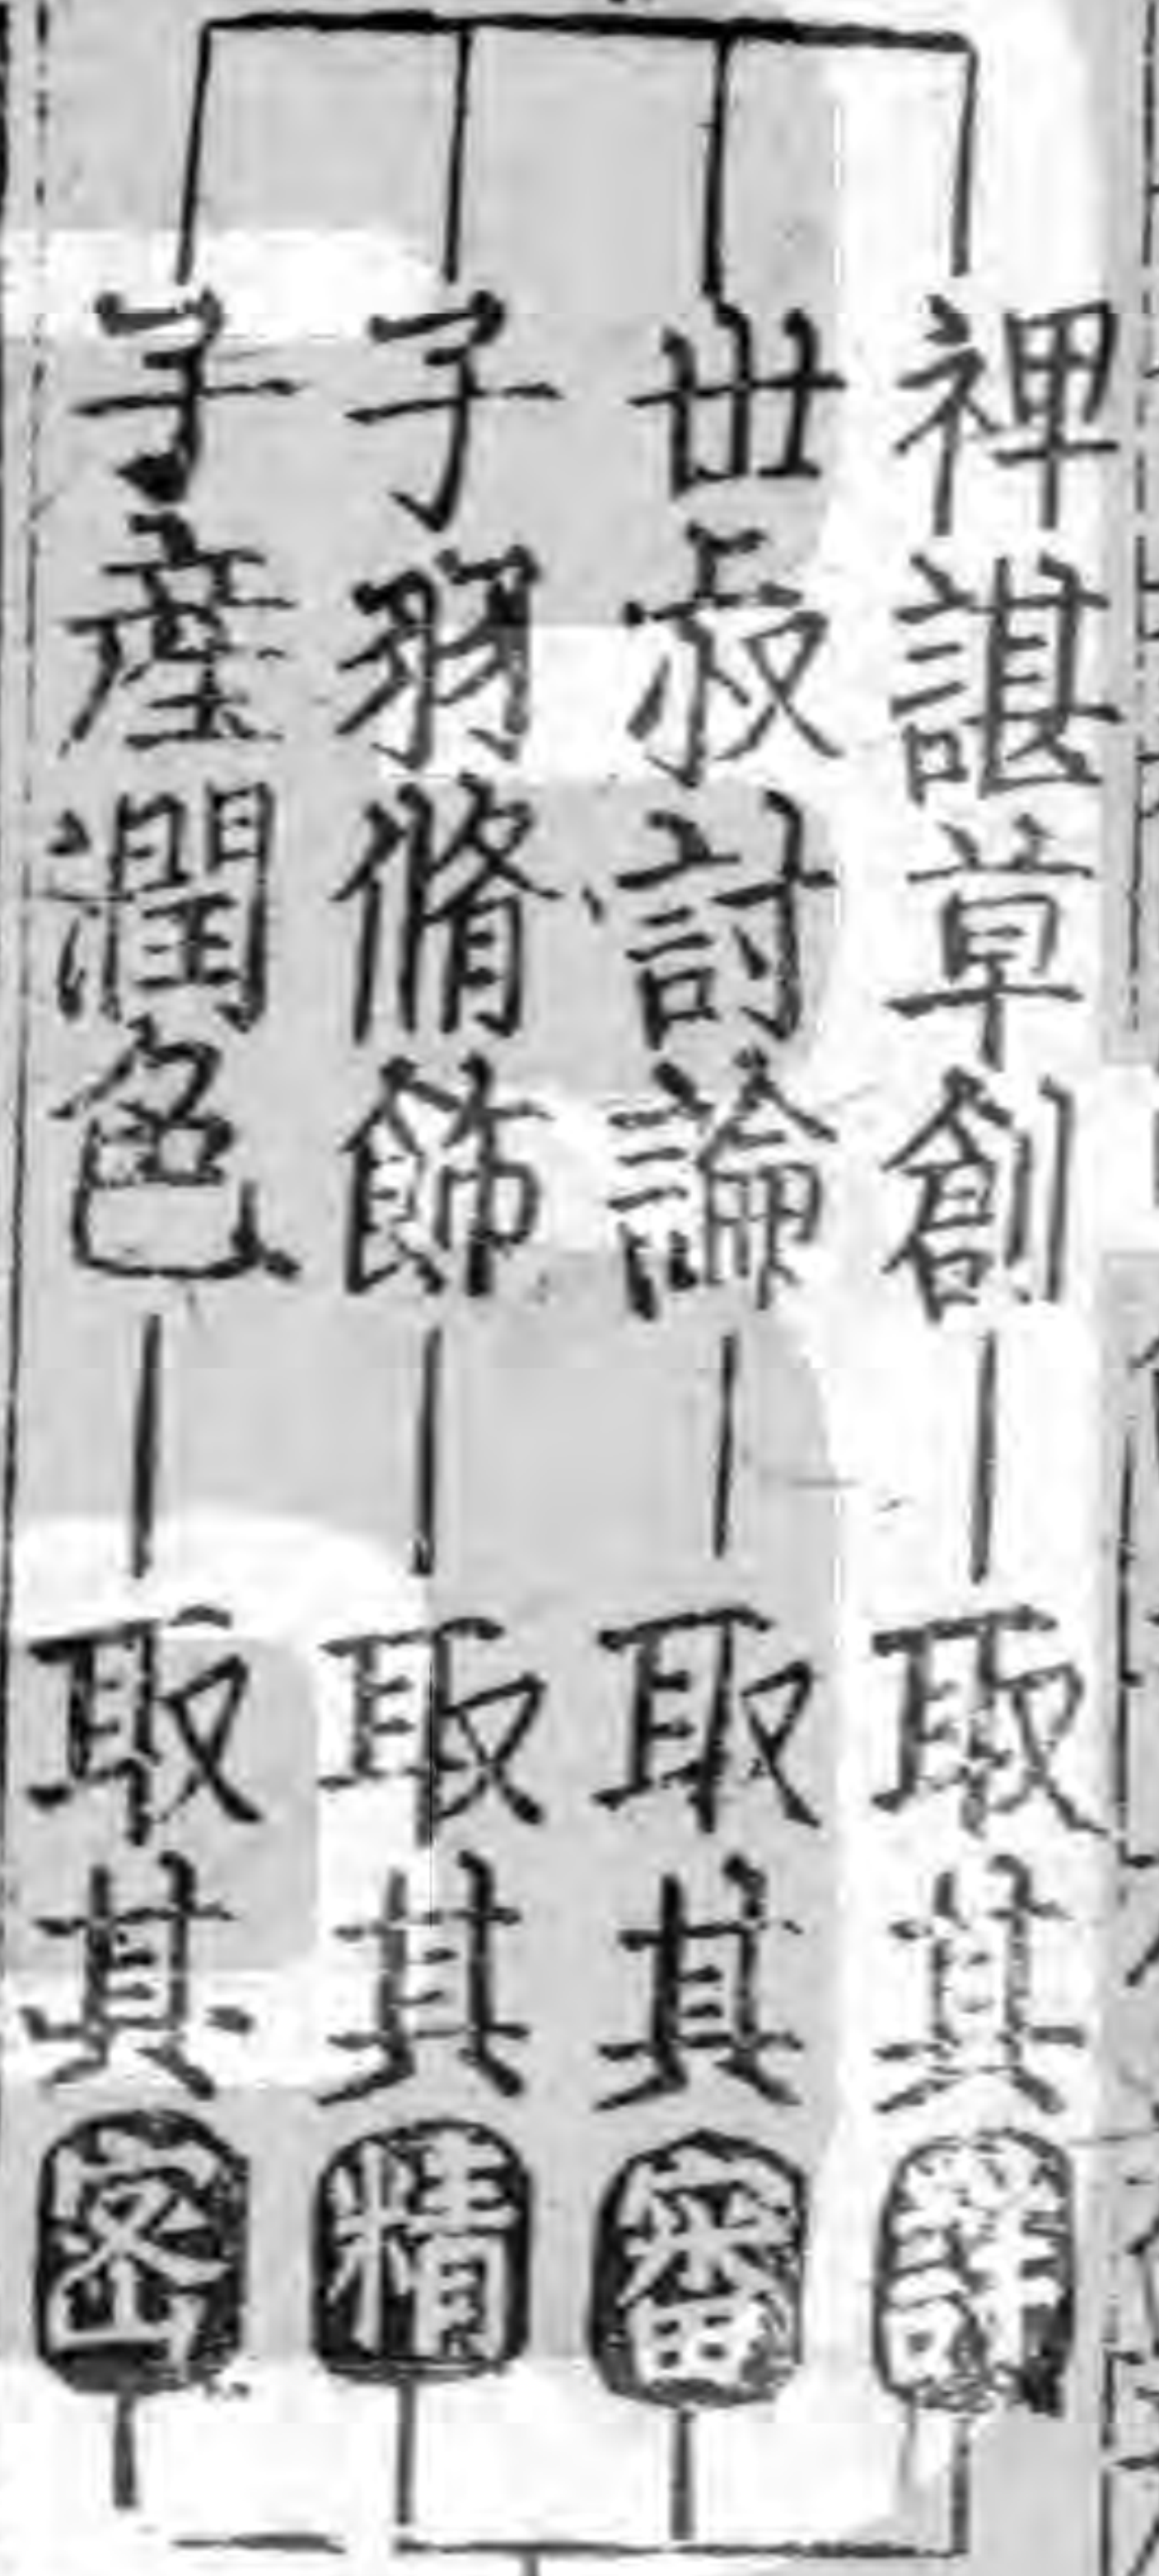 裨諶草創取其詳
世叔討論取其審
子羽脩飾取其精
子產潤色取其密